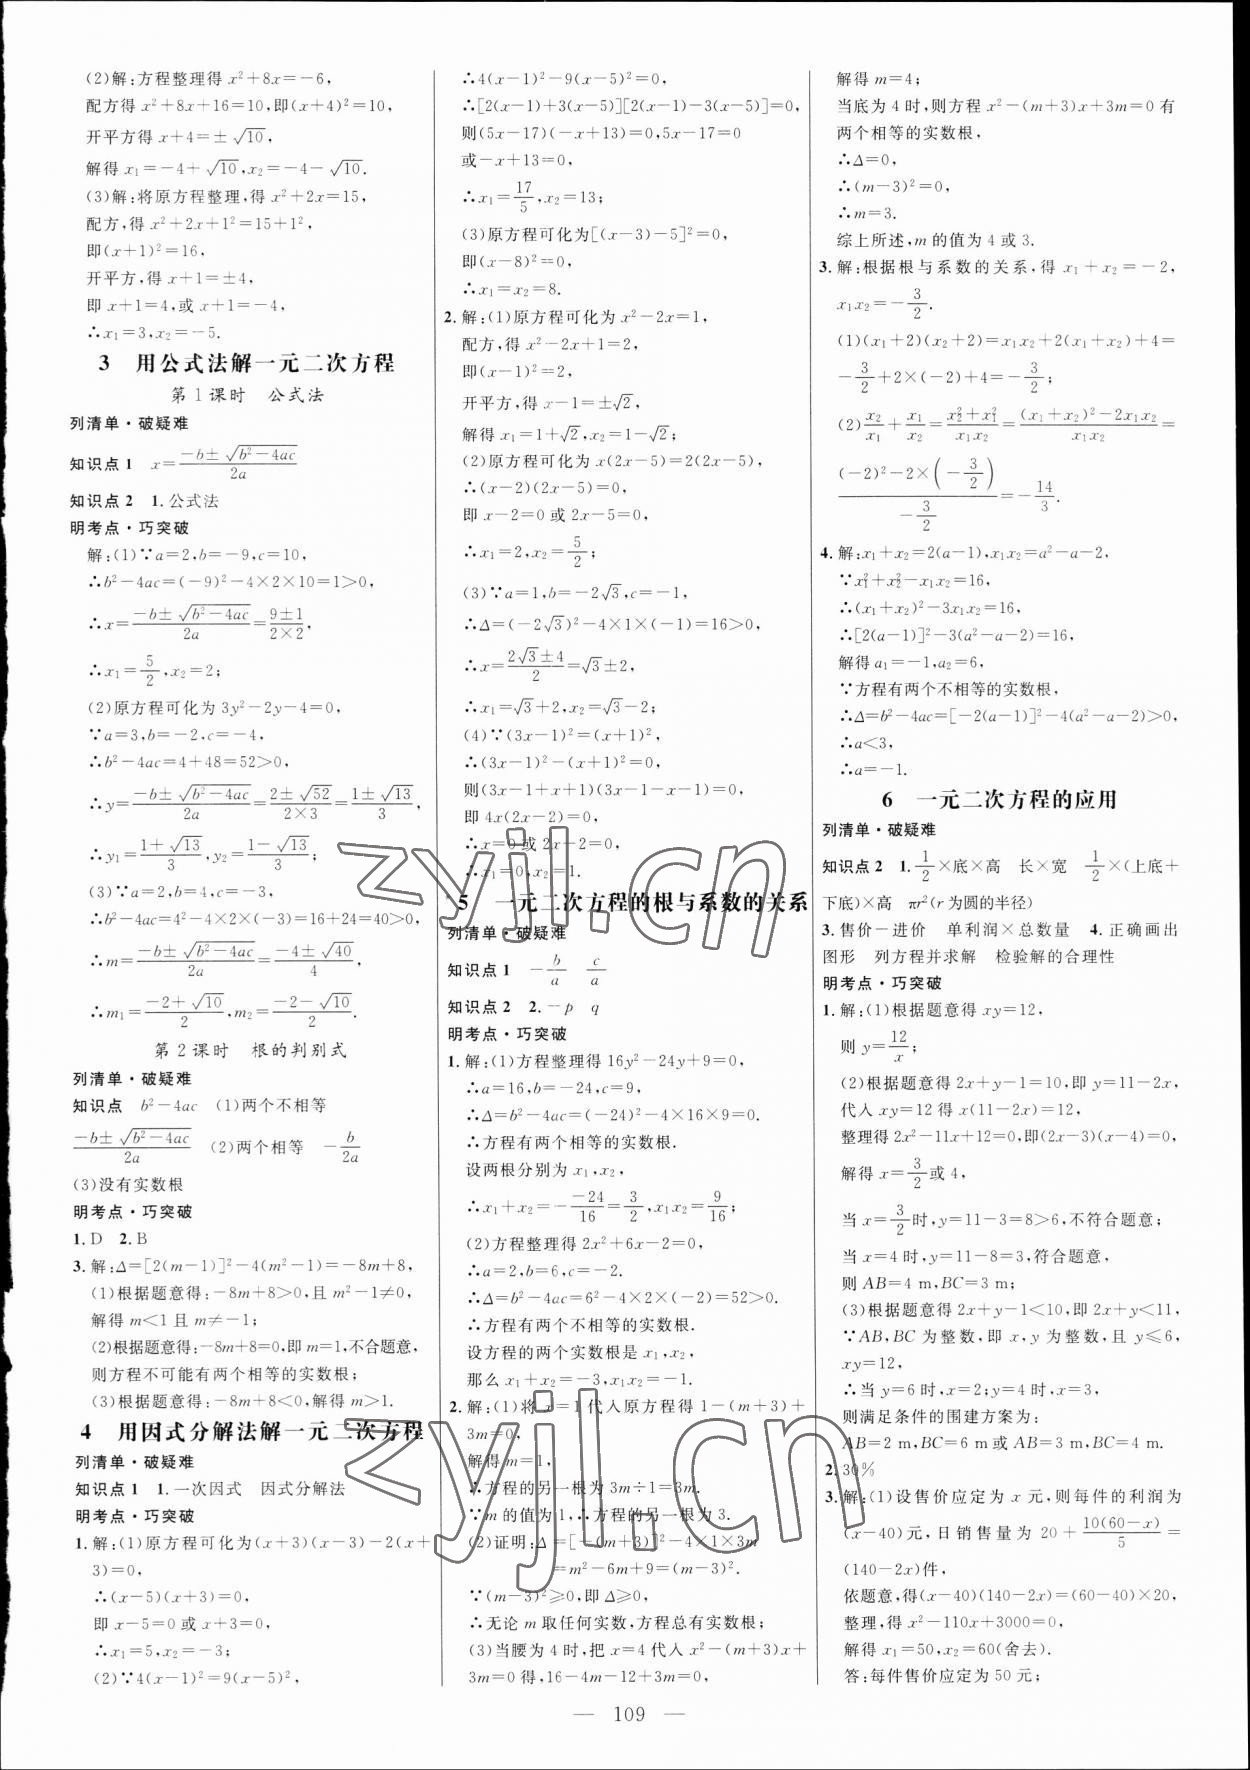 (2)解:方程整理得 x²+8x=-6,
配方得 x²+8x+16=10,即(x+4)²=10,
开平方得 x+4=±√10,
解得 x₁=-4+√10,x₂=-4-√10.
(3)解:将原方程整理,得 x²+2x=15,
配方,得 x²+2x+1²=15+1²,
即(x+1)²=16,
开平方,得 x+1=±4,
即 x+1=4,或 x+1=-4,
∴x₁=3,x₂=-5.
3 用公式法解一元二次方程
第1课时 公式法
列清单·破疑难
知识点1 x=(-b±√(b²-4ac))/2a
知识点2 1.公式法
明考点·巧突破
解:(1)∵a=2,b=-9,c=10,
∴b²-4ac=(-9)²-4×2×10=1>0,
∴x=(-b±√(b²-4ac))/2a=(9±1)/(2×2),
∴x₁=5/2,x₂=2;
(2)原方程可化为 3y²-2y-4=0,
∵a=3,b=-2,c=-4,
∴b²-4ac=4+48=52>0,
∴y=(-b±√(b²-4ac))/2a=(2±√52)/(2×3)=(1±√13)/3,
∴y₁=(1+√13)/3,y₂=(1-√13)/3;
(3)∵a=2,b=4,c=-3,
∴b²-4ac=4²-4×2×(-3)=16+24=40>0,
∴m=(-b±√(b²-4ac))/2a=(-4±√40)/4,
∴m₁=(-2+√10)/2,m₂=(-2-√10)/2.
第2课时 根的判别式
列清单·破疑难
知识点 b²-4ac (1)两个不相等
(-b±√(b²-4ac))/2a (2)两个相等 -b/2a
(3)没有实数根
明考点·巧突破
1.D 2.B
3.解:Δ=[2(m-1)]²-4(m²-1)=-8m+8,
(1)根据题意得:-8m+8>0,且 m²-1≠0,
解得 m<1且 m≠-1;
(2)根据题意得:-8m+8=0,即 m=1,不合题意,
则方程不可能有两个相等的实数根;
(3)根据题意得:-8m+8<0,解得 m>1.
4 用因式分解法解一元二次方程
列清单·破疑难
知识点1 1.一次因式 因式分解法
明考点·巧突破
1.解:(1)原方程可化为(x+3)(x-3)-2(x+
3)=0,
∴(x-5)(x+3)=0,
即 x-5=0 或 x+3=0,
∴x₁=5,x₂=-3;
(2)∵4(x-1)²=9(x-5)²,
∴4(x-1)²-9(x-5)²=0,
∴[2(x-1)+3(x-5)][2(x-1)-3(x-5)]=0,
则(5x-17)(-x+13)=0,5x-17=0
或-x+13=0,
∴x₁=17/5,x₂=13;
(3)原方程可化为[(x-3)-5]²=0,
即(x-8)²=0,
∴x₁=x₂=8.
2.解:(1)原方程可化为 x²-2x=1,
配方,得 x²-2x+1=2,
即(x-1)²=2,
开平方,得 x-1=±√2,
解得 x₁=1+√2,x₂=1-√2;
(2)原方程可化为 x(2x-5)=2(2x-5),
∴(x-2)(2x-5)=0,
即 x-2=0 或 2x-5=0,
∴x₁=2,x₂=5/2;
(3)∵a=1,b=-2√3,c=-1,
∴Δ=(-2√3)²-4×1×(-1)=16>0,
∴x=(2√3±4)/2=√3±2,
∴x₁=√3+2,x₂=√3-2;
(4)∵(3x-1)²=(x+1)²,
∴(3x-1)²-(x+1)²=0,
则(3x-1+x+1)(3x-1-x-1)=0,
即 4x(2x-2)=0,
∴x=0 或 2x-2=0,
∴x₁=0,x₂=1.
5 一元二次方程的根与系数的关系
列清单·破疑难
知识点1 -b/a c/a
知识点2 2.-p q
明考点·巧突破
1.解:(1)方程整理得 16y²-24y+9=0,
∴a=16,b=-24,c=9,
∴Δ=b²-4ac=(-24)²-4×16×9=0.
∴方程有两个相等的实数根.
设两根分别为 x₁,x₂,
∴x₁+x₂=-(-24)/16=3/2,x₁x₂=9/16;
(2)方程整理得 2x²+6x-2=0,
∴a=2,b=6,c=-2.
∴Δ=b²-4ac=6²-4×2×(-2)=52>0.
∴方程有两个不相等的实数根.
设方程的两个实数根是 x₁,x₂,
那么 x₁+x₂=-3,x₁x₂=-1.
2.解:(1)将 x=1 代入原方程得 1-(m+3)+
3m=0,
解得 m=1,
∴方程的另一根为 3m÷1=3m.
∵m 的值为1,∴方程的另一根为 3.
(2)证明:Δ=[-(m+3)]²-4×1×3m
=m²-6m+9=(m-3)².
∵(m-3)²≥0,即 Δ≥0,
∴无论 m 取任何实数,方程总有实数根;
(3)当腰为 4 时,把 x=4 代入 x²-(m+3)x+
3m=0得,16-4m-12+3m=0,
解得 m=4;
当底为 4 时,则方程 x²-(m+3)x+3m=0 有
两个相等的实数根,
∴Δ=0,
∴(m-3)²=0,
∴m=3.
综上所述,m 的值为 4 或 3.
3.解:根据根与系数的关系,得 x₁+x₂=-2,
x₁x₂=-3/2.
(1)(x₁+2)(x₂+2)=x₁x₂+2(x₁+x₂)+4=
-3/2+2×(-2)+4=-3/2;
(2)x₂/x₁+x₁/x₂=(x₂²+x₁²)/x₁x₂=((x₁+x₂)²-2x₁x₂)/x₁x₂=
((-2)²-2×(-3/2))/(-3/2)=-14/3.
4.解:x₁+x₂=2(a-1),x₁x₂=a²-a-2,
∵x₁²+x₂²-x₁x₂=16,
∴(x₁+x₂)²-3x₁x₂=16,
∴[2(a-1)]²-3(a²-a-2)=16,
解得 a₁=-1,a₂=6,
∵方程有两个不相等的实数根,
∴Δ=b²-4ac=[-2(a-1)]²-4(a²-a-2)>0,
∴a<3,
∴a=-1.
6 一元二次方程的应用
列清单·破疑难
知识点2 1.1/2×底×高 长×宽 1/2×(上底+
下底)×高 πr²(r 为圆的半径)
3.售价-进价 单利润×总数量 4.正确画出
图形 列方程并求解 检验解的合理性
明考点·巧突破
1.解:(1)根据题意得 xy=12,
则 y=12/x;
(2)根据题意得 2x+y-1=10,即 y=11-2x,
代入 xy=12 得 x(11-2x)=12,
整理得 2x²-11x+12=0,即(2x-3)(x-4)=0,
解得 x=3/2或 4,
当 x=3/2时,y=11-3=8>6,不符合题意;
当 x=4 时,y=11-8=3,符合题意,
则 AB=4 m,BC=3 m;
(3)根据题意得 2x+y-1<10,即 2x+y<11,
∵AB,BC 为整数,即 x,y 为整数,且 y≤6,
xy=12,
∴当 y=6 时,x=2;y=4 时,x=3,
则满足条件的围建方案为:
AB=2 m,BC=6 m 或 AB=3 m,BC=4 m.
2.30%
3.解:(1)设售价应定为 x 元,则每件的利润为
(x-40)元,日销售量为 20+10(60-x)/5=
(140-2x)件,
依题意,得(x-40)(140-2x)=(60-40)×20,
整理,得 x²-110x+3000=0,
解得 x₁=50,x₂=60(舍去).
答:每件售价应定为 50 元;
— 109 —
zyjl.cn
zyjl.cn